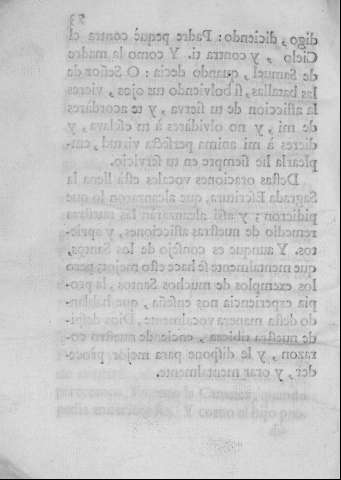 53
digo, diciendo: Padre pequè contra el
Cielo, y contra ti. Y como la madre
de Samuel, quando decia: O Señor de
las batallas, si bolviendo tus ojos, vieres
la afliccion de tu sierva, y te acordàres
de mi, y no olvidàres à tu esclava, y
dieres à mi anima perfecta virtud, em-
plearla he siempre en tu servicio.
Destas oraciones vocales està llena la
Sagrada Escritura, que alcanzaron lo que
pidieron; y assi alcanzaràn las nuestras
remedio de nuestras aflicciones, y aprie-
tos. Y aunque es consejo de los Santos,
que mentalmente se hace esto mejor; pero
los exemplos de muchos Santos, la pro-
pia experiencia nos enseña, que hablan-
do desta manera vocalmente, Dios despi-
de nuestra tibieza, enciende nuestro co-
razon, y le dispone para mejor proce-
der, y orar mentalmente.